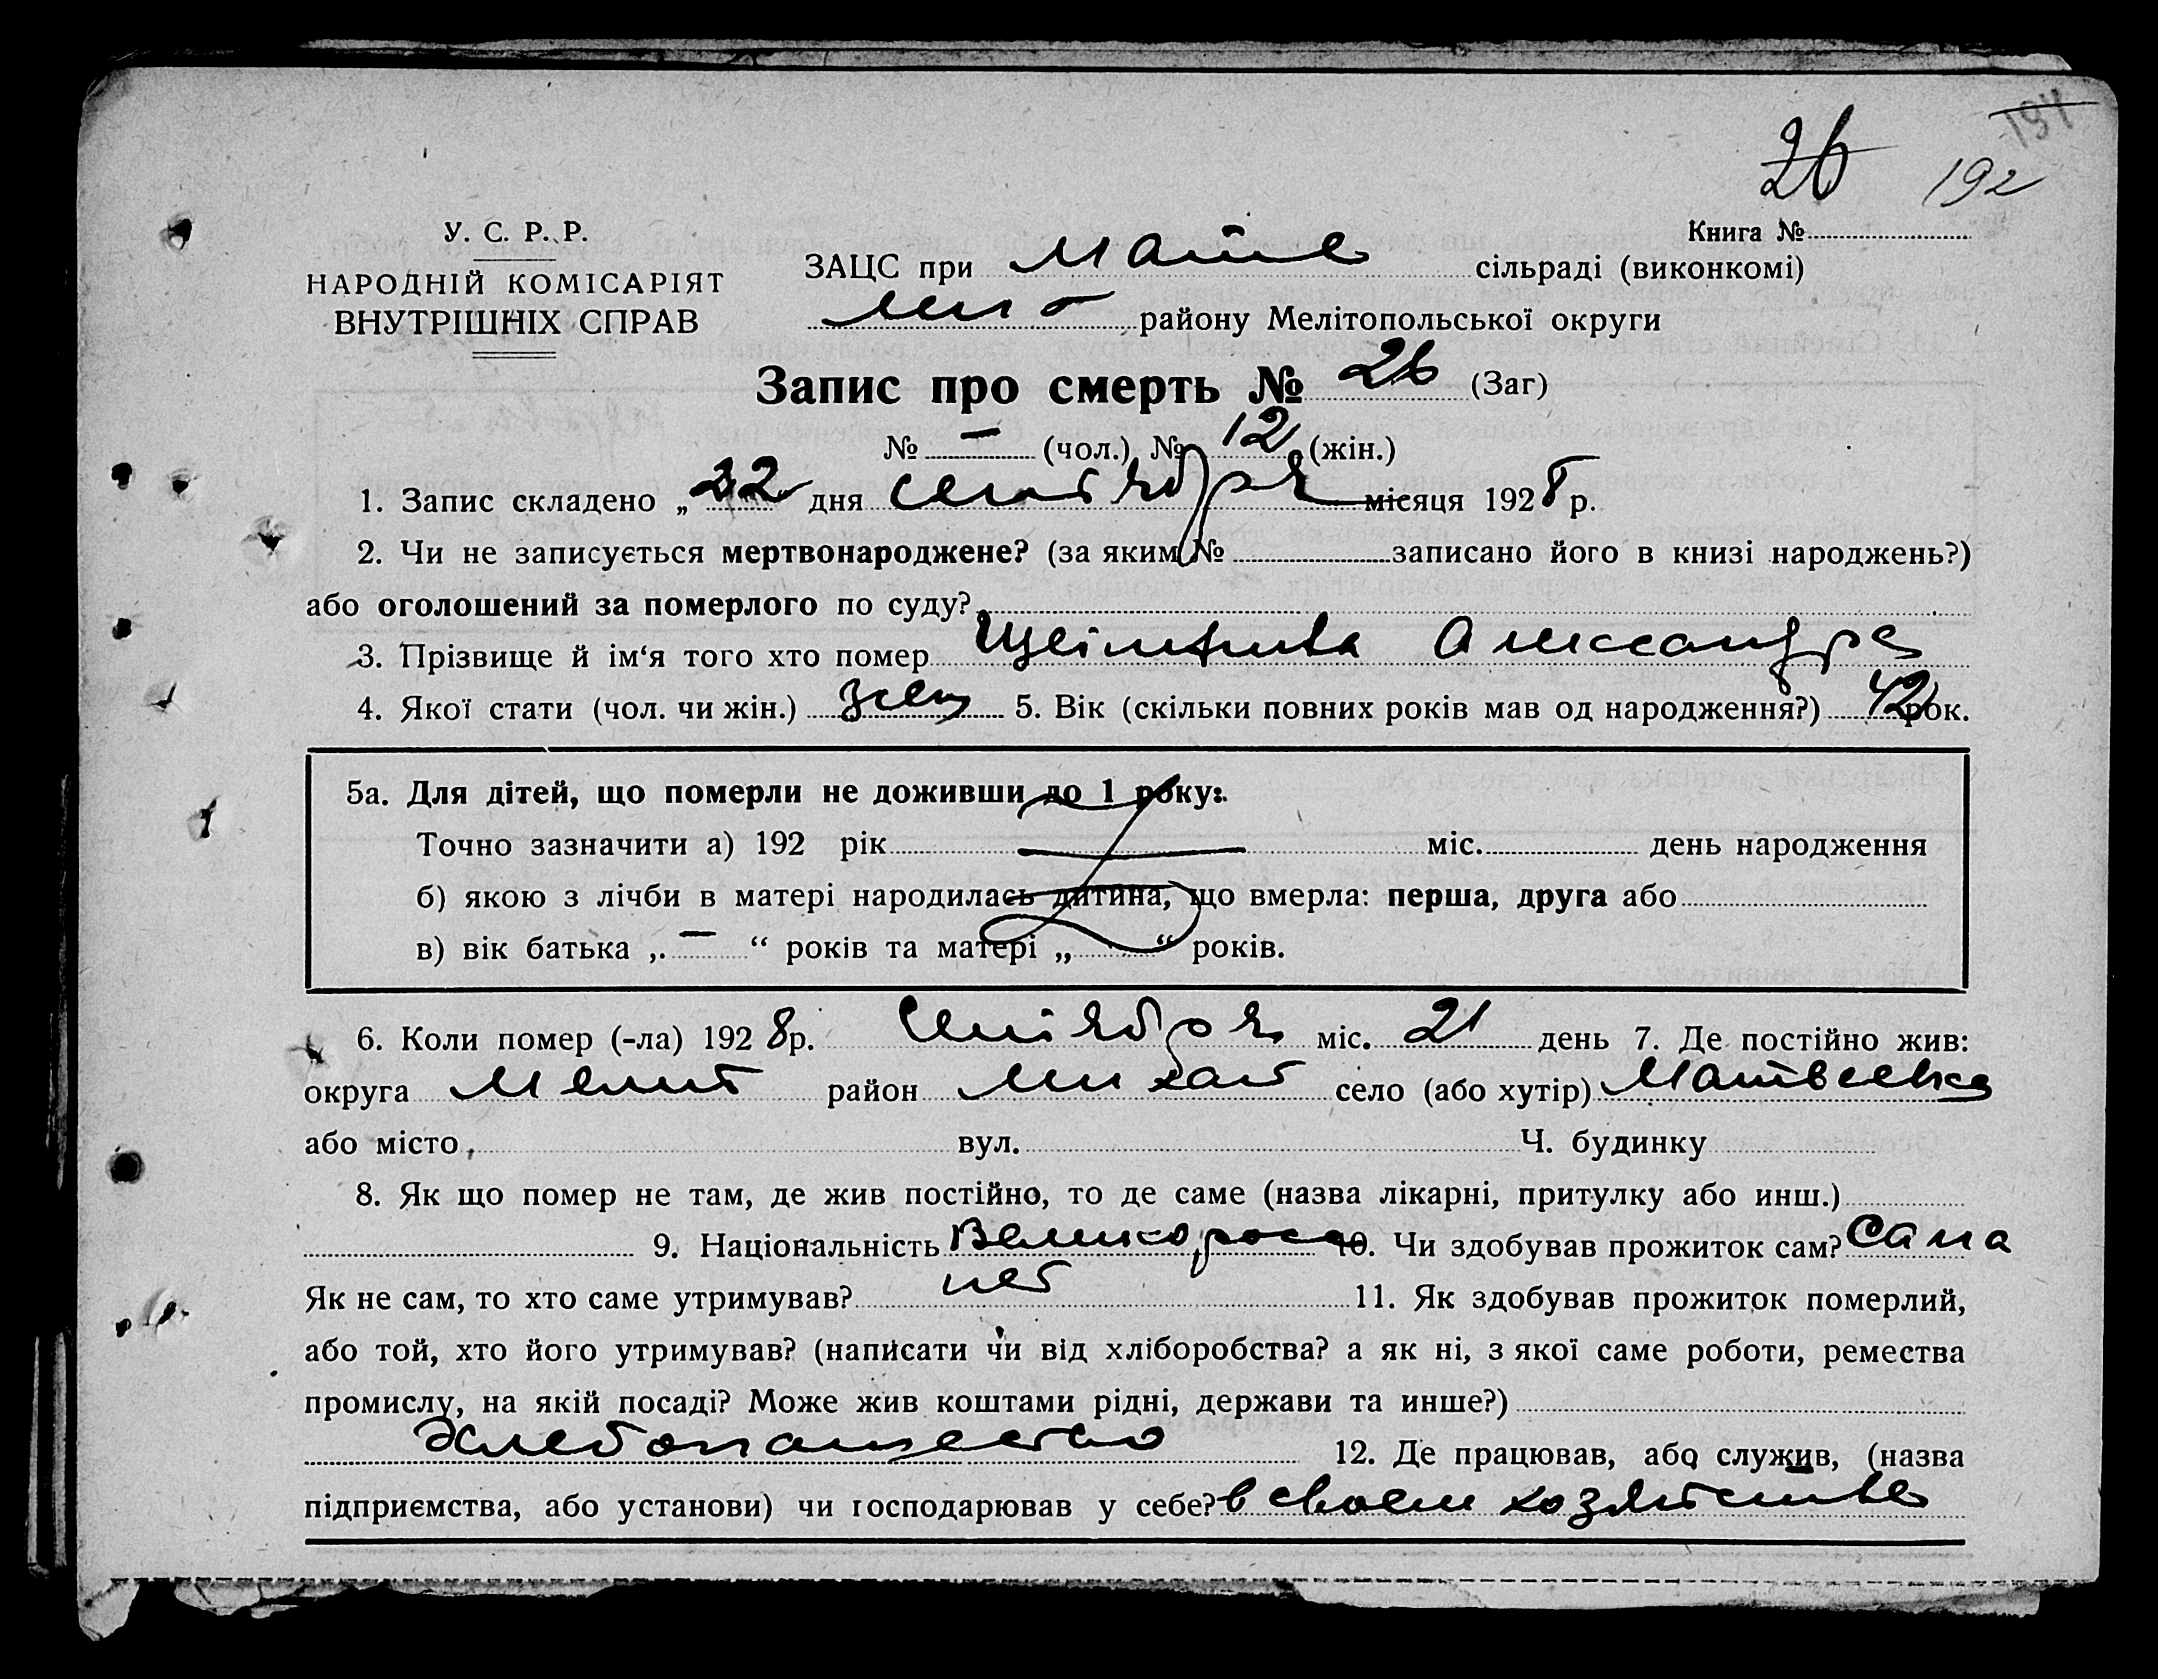 194
26 192
У. С. Р. Р.
Книга №
НАРОДНІЙ КОМІСАРІЯТ
ВНУТРІШНІХ СПРАВ
ЗАЦС при Матве сільраді (виконкомі)
району Мелітопольської округи
Запис про смерть № 26 (Заг)
№ — (чол.) № 12 (жін.)
1. Запис складено „ 22 дня сентября місяця 1928 р.
2. Чи не записується мертвонароджене? (за яким № записано його в книзі народжень?)
або оголошений за померлого по суду?
3. Прізвище й ім‘я того хто помер Александра
4. Якої стати (чол. чи жін.) жен 5. Вік (скільки повних років мав од народження?) 42 рок.
5а. Для дітей, що померли не доживши до 1 року:
Точно зазначити а) 192 рік — міс. день народження
б) якою з лічби в матері народилась дитина, що вмерла: перша, друга або
в) вік батька „ — “ років та матері „ “ років.
6. Коли помер (-ла) 1928 р. Сентября міс. 21 день 7. Де постійно жив:
округа Мелит район Михайл село (або хутір) Матвеевка
або місто, вул. Ч. будинку
8. Як що помер не там, де жив постійно, то де саме (назва лікарні, притулку або инш.)
9. Національність Великоросс 10. Чи здобував прожиток сам? Сама
Як не сам, то хто саме утримував? нет 11. Як здобував прожиток померлий,
або той, хто його утримував? (написати чи від хліборобства? а як ні, з якої саме роботи, ремества
промислу, на якій посаді? Може жив коштами рідні, держави та инше?)
Хлебопашество 12. Де працював, або служив, (назва
підприємства, або установи) чи господарював у себе? в своем хозяйстве